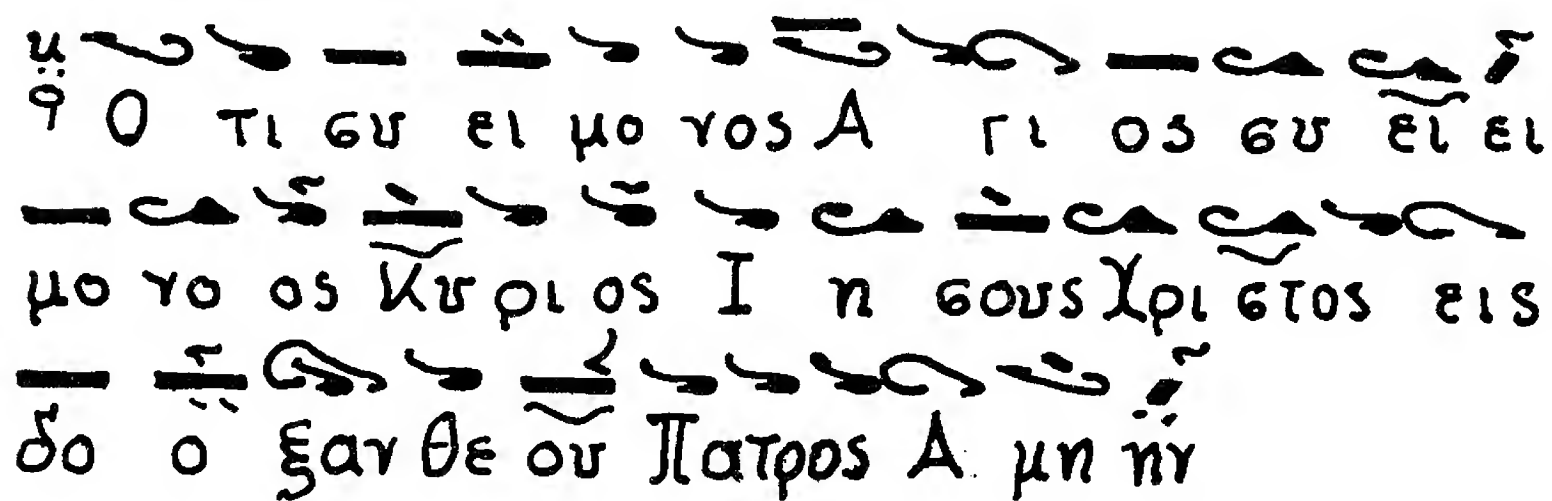 Ο τι συ ει μο νος Α γι ος συ ει ει
μο νο ος Κυ ρι ος Ι η σους Χρι στος εις
δο ο ξαν θε ου Πατρος Α μη ην